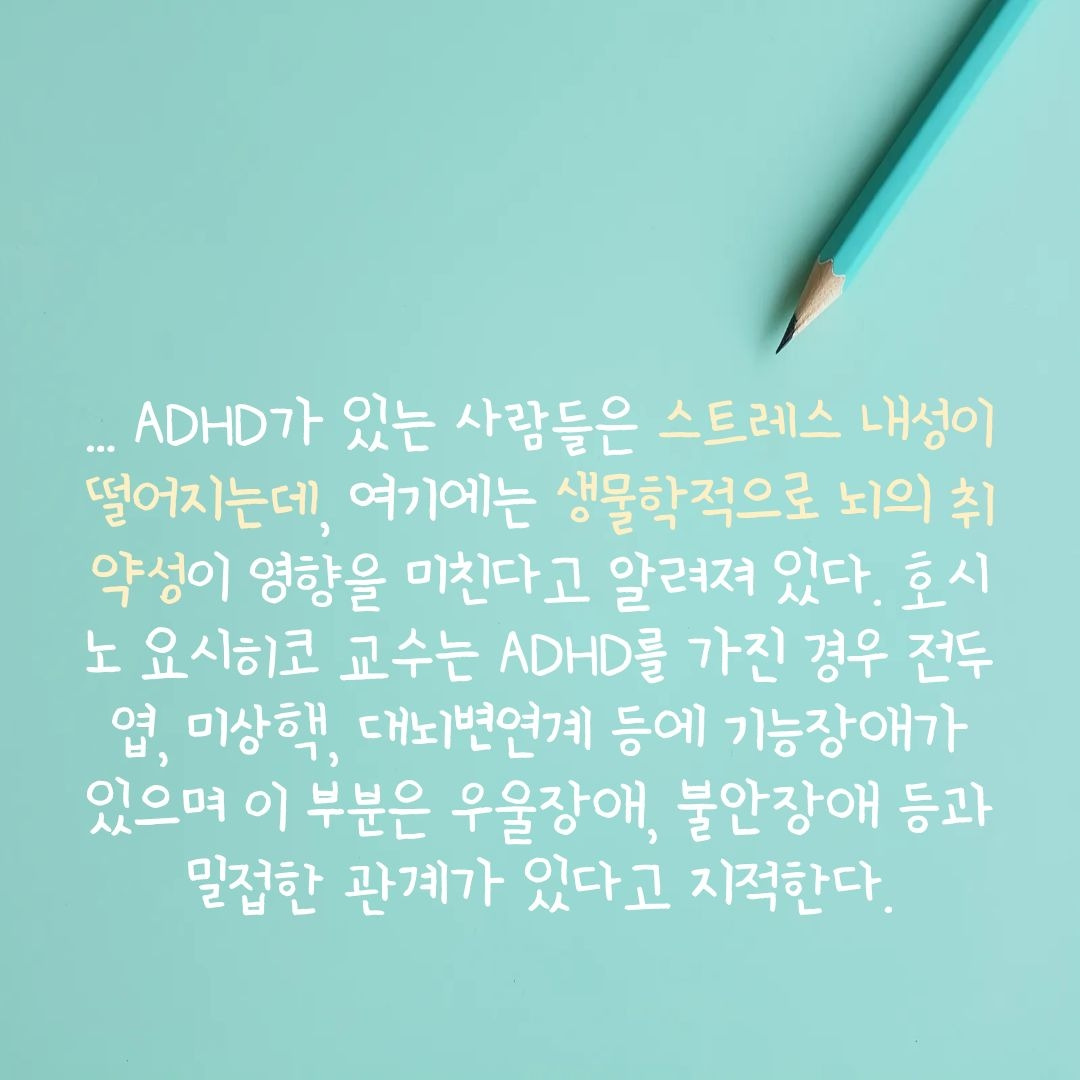 ... ADHD가 있는 사람들은 스트레스 내성이
떨어지는데, 여기에는 생물학적으로 뇌의 취
약성이 영향을 미친다고 알려져 있다. 호시
노 요시히코 교수는 ADHD를 가진 경우 전두
엽, 미상핵, 대뇌변연계 등에 기능장애가
있으며 이 부분은 우울장애, 불안장애 등과
밀접한 관계가 있다고 지적한다.